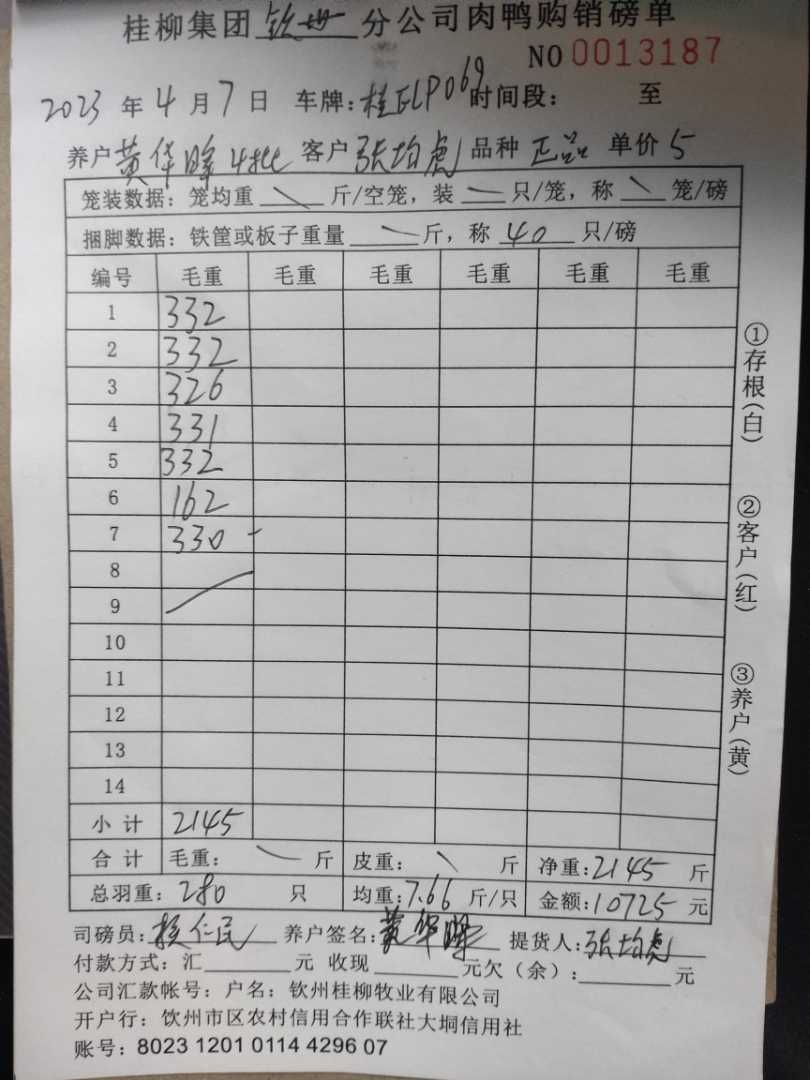 桂柳集团 钦州 分公司肉鸭购销磅单
NO 0013187
2023 年 4 月 7 日 车牌: 时间段: 至
养户 黄华晖 4批 客户 张均彪 品种 正品 单价 5
笼装数据: 笼均重 \ 斤/空笼, 装 — 只/笼, 称 \ 笼/磅
捆脚数据: 铁筐或板子重量 \ 斤, 称 40 只/磅
编号 毛重 毛重 毛重 毛重 毛重 毛重
1 332
2 332
3 326
4 331
5 332
6 162
7 330 -
8
9
10
11
12
13
14
小 计 2145
合 计 毛重: \ 斤 皮重: \ 斤 净重: 2145 斤
总羽重: 280 只 均重: 7.66 斤/只 金额: 10725 元
司磅员: 仁民 养户签名: 黄华晖 提货人: 张均彪
付款方式: 汇 元 收现 元欠(余): 元
公司汇款帐号: 户名: 钦州桂柳牧业有限公司
开户行: 饮州市区农村信用合作联社大垌信用社
账号: 8023 1201 0114 4296 07
①存根(白)
②客户(红)
③养户(黄)